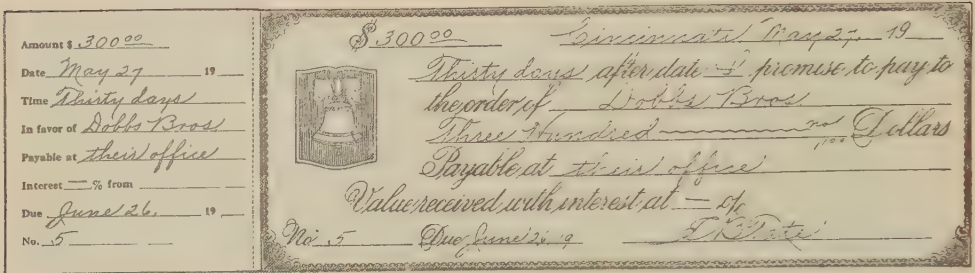 Amount $ 300 00
Date May 27 19
Time Thirty days
In favor of Dobbs Bros.
Payable at their office
Interest — % from
Due June 26, 19
No. 5
$ 300 00 Cincinnati May 27, 19
Thirty days after date I promise to pay to
the order of Dobbs Bros.
Three Hundred no/100 Dollars
Payable at their office
Value received with interest at — %
No 5 Due June 26 19